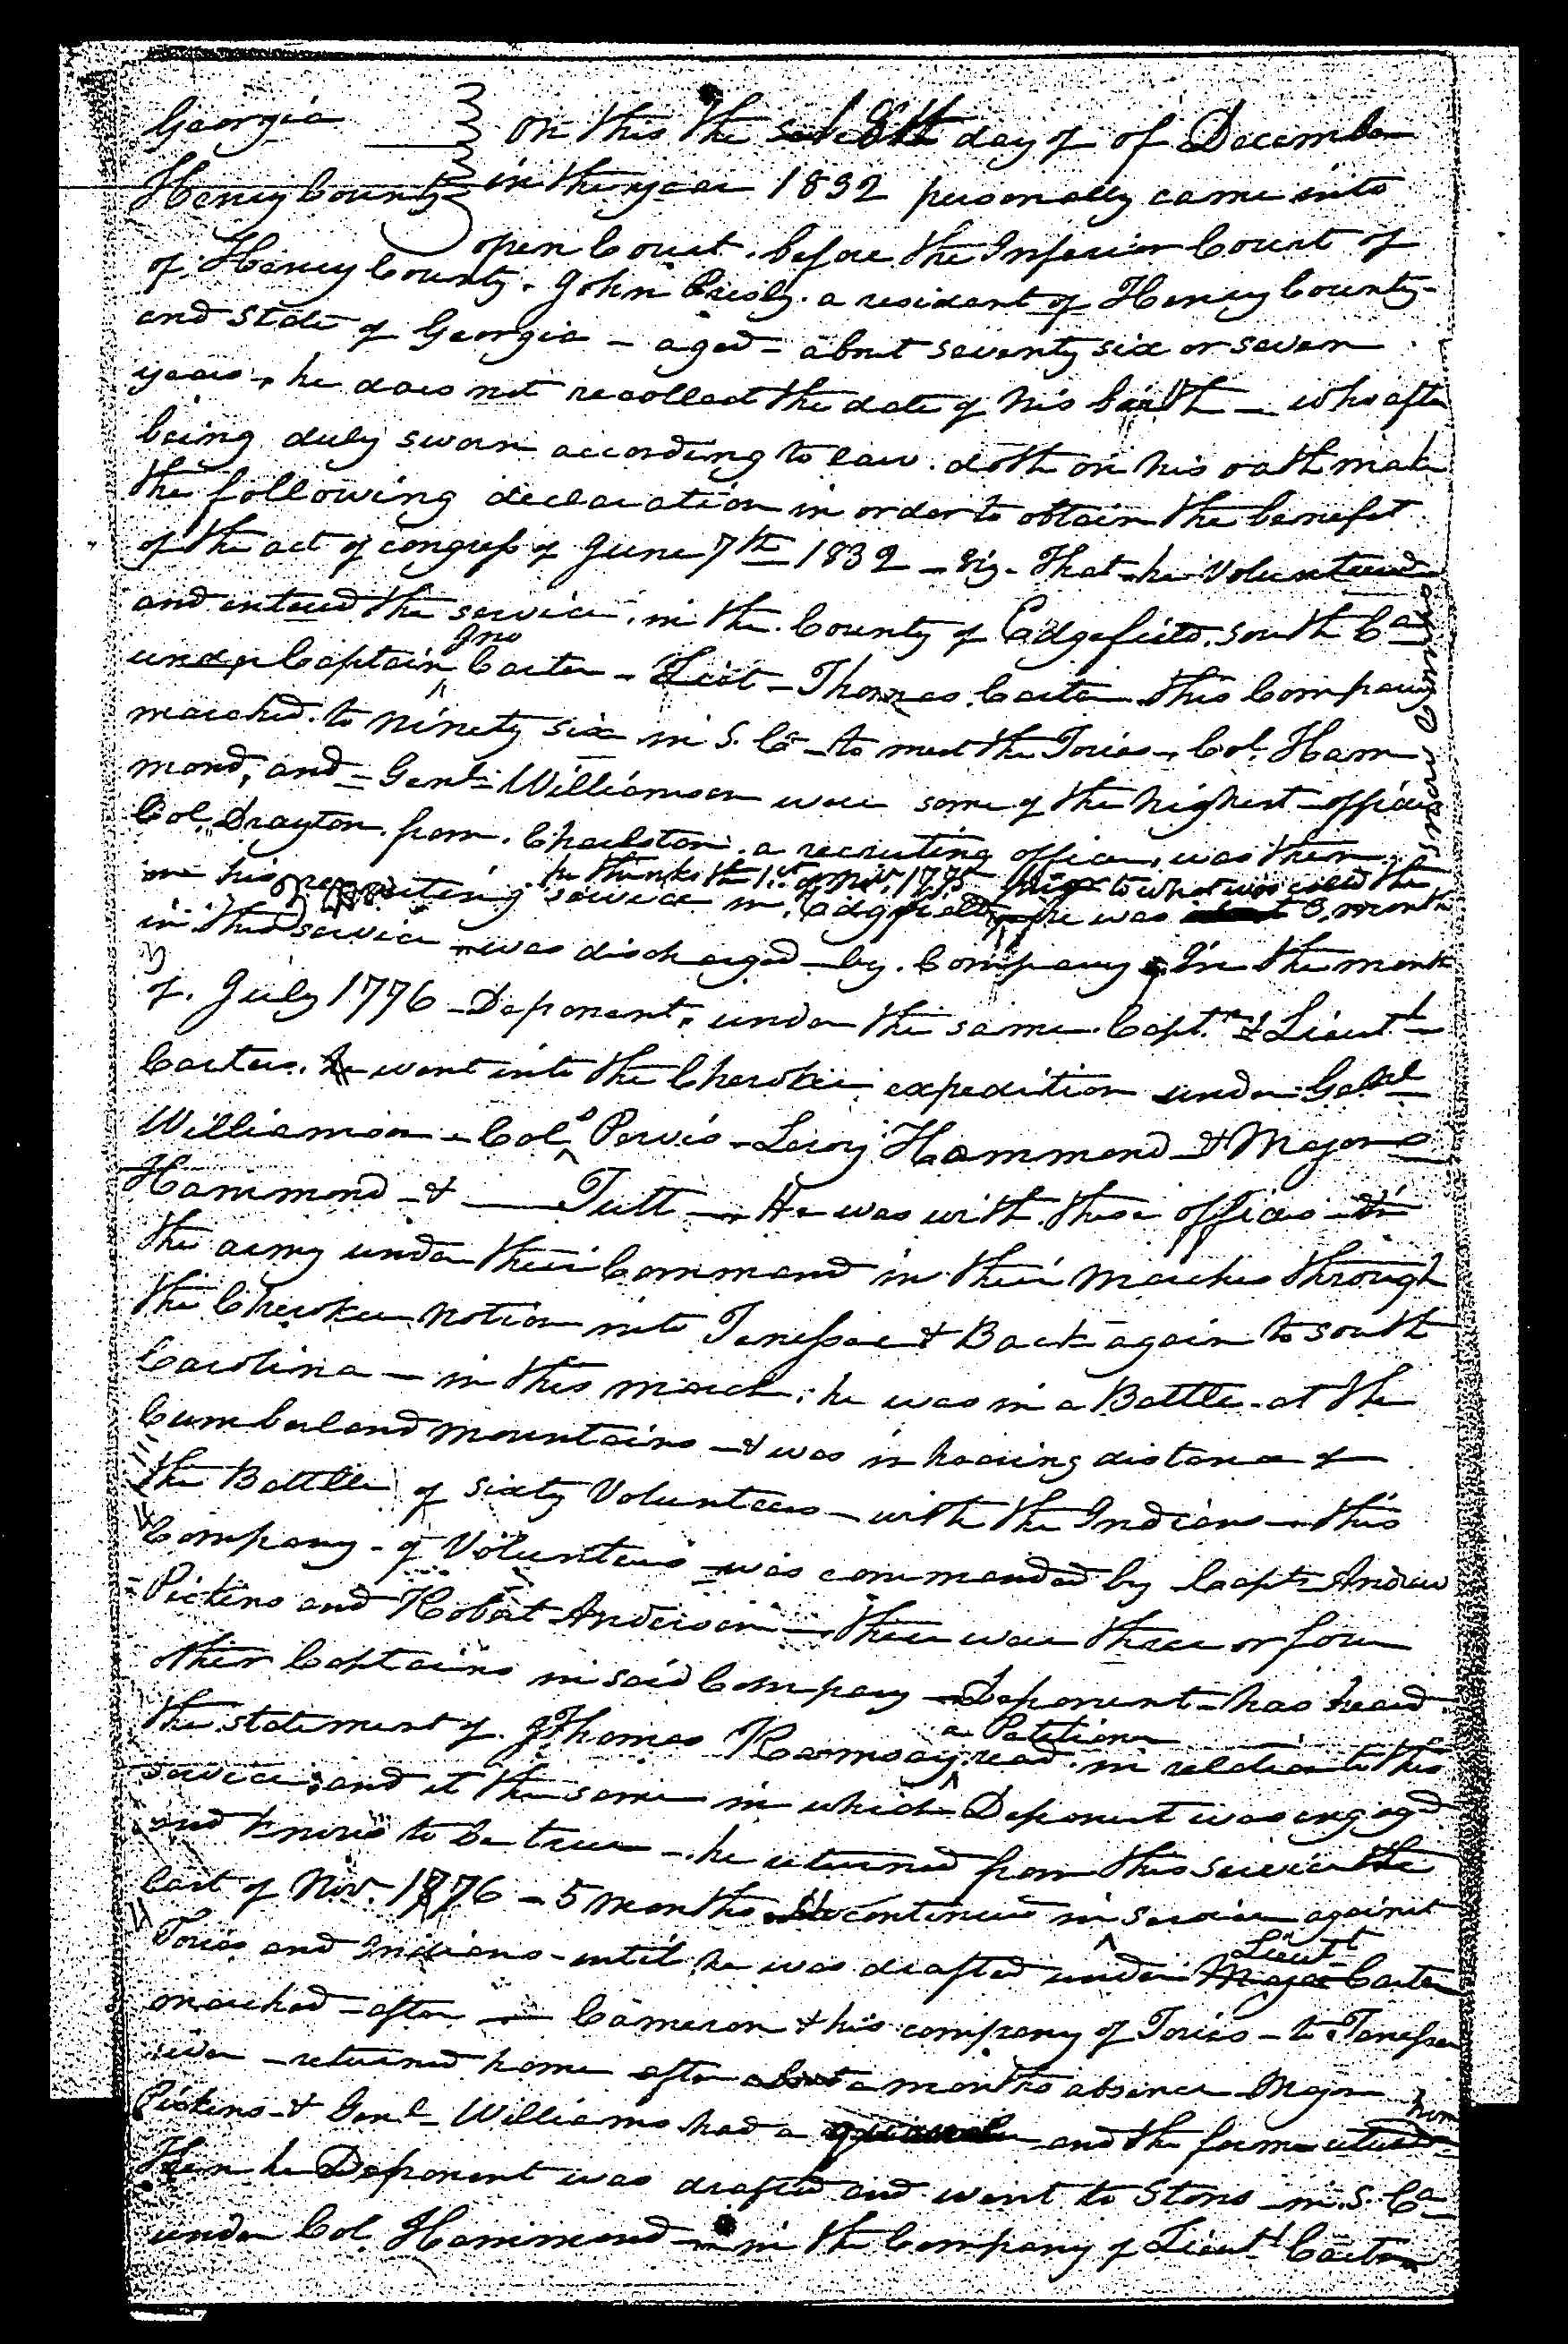 Georgia
Henry County
On this the 8th day of of December
in the year 1832 personally came into
open Court before the Inferior Court of
of Henry County. John Presly. a resident of Henry County
and State of Georgia - aged - about seventy six or seven
years, he does not recollect the date of his birth - who after
being duly sworn according to law. doth on his oath make
the following declaration in order to obtain the benefit
of the act of congress of June 7th 1832 - Viz. That he Volunteered
and entered the service in the County of Edgefield. South Ca
under Captain Jno Carter - Liut - Thomas Carter. This Company
marched to Ninety Six in S. Ca - to meet the Tories, Col. Ham
mond, and - Genl. Williamson were some of the highest officers
Col. Drayton from Charleston. a recruiting officer, was then
on his recruiting service in Edgefield he thinks the 1st of Nov. 1775 to what was called the
he was 3 months
in this service - was discharged by Company In the month
of July 1776 - Deponent, under the same Capt. & Lieut
Carters. went into the Cherokee expedition under Genl
Williamson - Cols Pervis - Leroy Hammond & Majors
Hammond - & Tutt - He was with these officers
the army under their Command in their marches through
the Cherokee Nation into Tenessee & Back again to south
Carolina - in this march, he was in a Battle at the
Cumberland mountains - & was in hearing distance of
the Battle of sixty Volunteers - with the Indians - this
Company - of Volunteers was commanded by Capts Andrew
Pickens and Robert Anderson - there were three or four
other Captains in said Company - Deponent - has heard
the statement of Thomas Ramsay, a Petitioner read in relation to this
service, and it the same in which Deponent was engaged
and knows to be true - he returned from this service the
last of Nov. 1776 - 5 months continued in service against
Tories and Indians - until he was drafted under Major Lieut Carter
marched - after Cameron & his company of Tories - to Tenessee
river - returned home after about a months absence Major
Pickens & Genl. Williams had a quarrel and the former returned home
Then he Deponent was drafted and went to Stono - in S. Ca
under Col. Hammond - in the Company of Lieut Carter